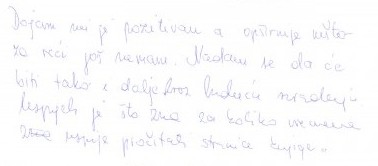 Dojam mi je pozitivan a opširnije nešto
za reći još nemam. Nadam se da će
biti tako i dalje kroz buduća
je što zna za koliko vremena
uspije pročitati stranice knjige.